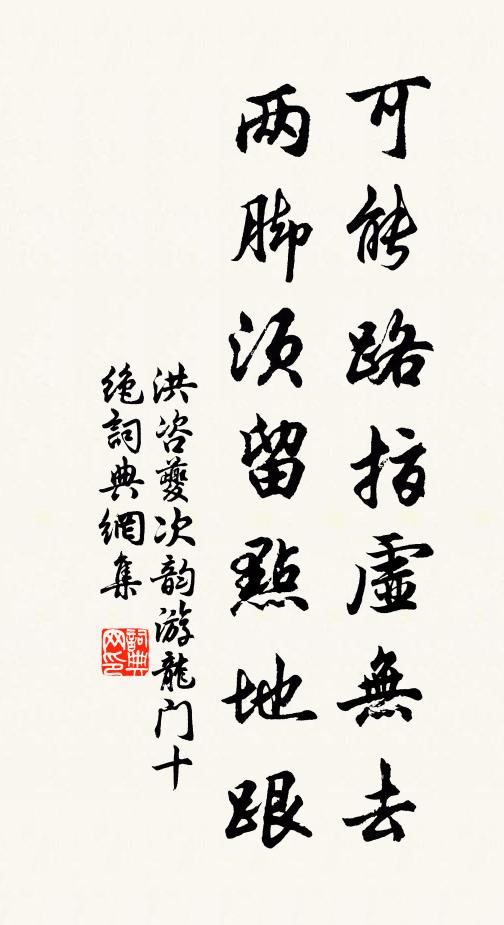 可能路指虛無去
两脚须留點地跟
洪咨夔次韵游龍门十
绝詞典網集
詞典
网印